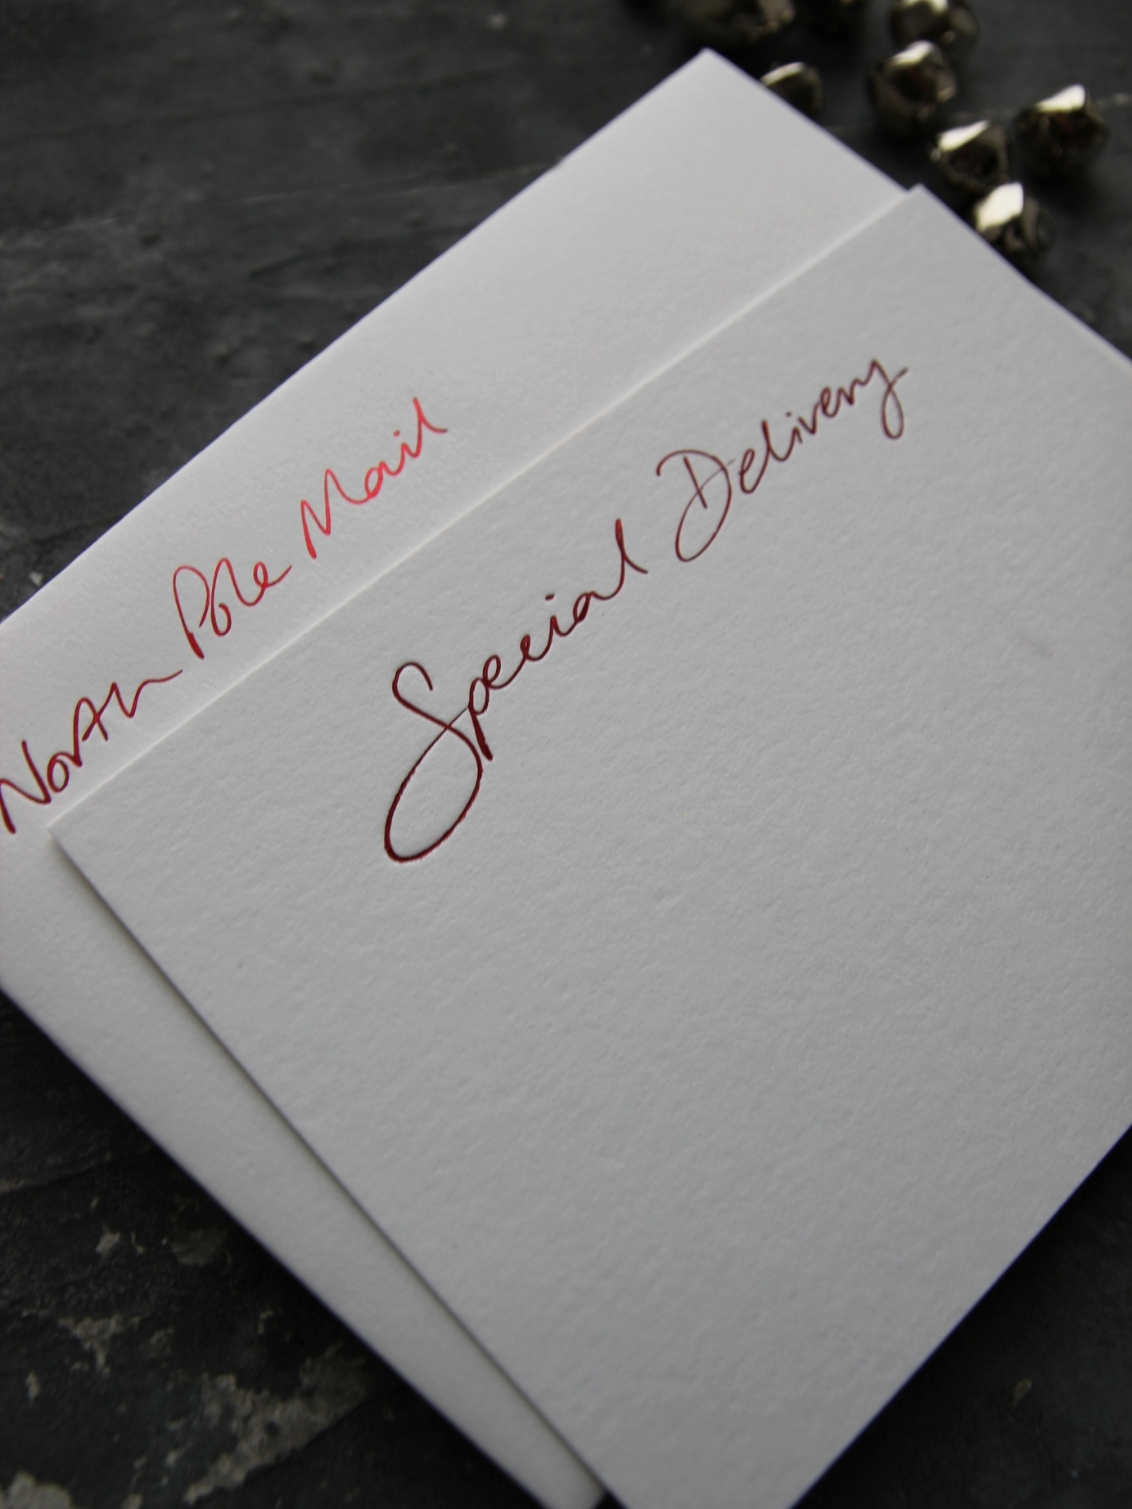 North Pole Mail
Special Delivery